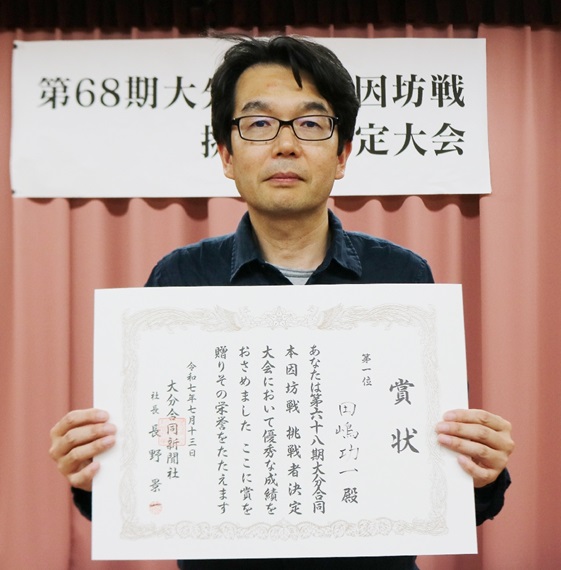 第68期大分 因坊戦
挑 定大会
賞状
第一位
田嶋功一殿
あなたは第六十八期大分合同
本因坊戦 挑戦者決定
大会において優秀な成績を
おさめました ここに賞を
贈りその栄誉をたたえます
令和七年七月十三日
大分合同新聞社
社長 長野景一